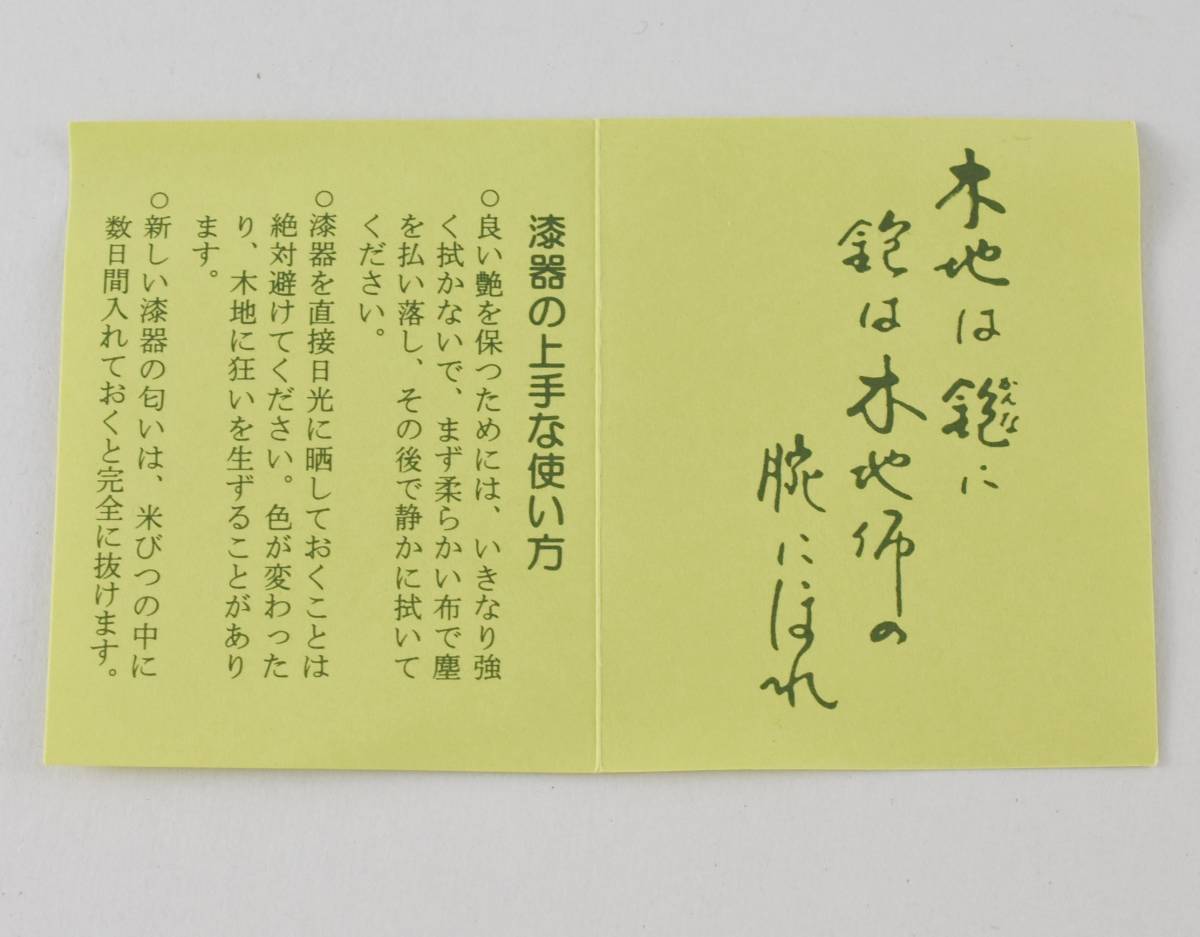 木地は鉋に
鉋は木地師の
腕にほれ
かんな
漆器の上手な使い方
○良い艶を保つためには、いきなり強
く拭かないで、まず柔らかい布で塵
を払い落し、その後で静かに拭いて
ください。
○漆器を直接日光に晒しておくことは
絶対避けてください。色が変わった
り、木地に狂いを生ずることがあり
ます。
○新しい漆器の匂いは、米びつの中に
数日間入れておくと完全に抜けます。